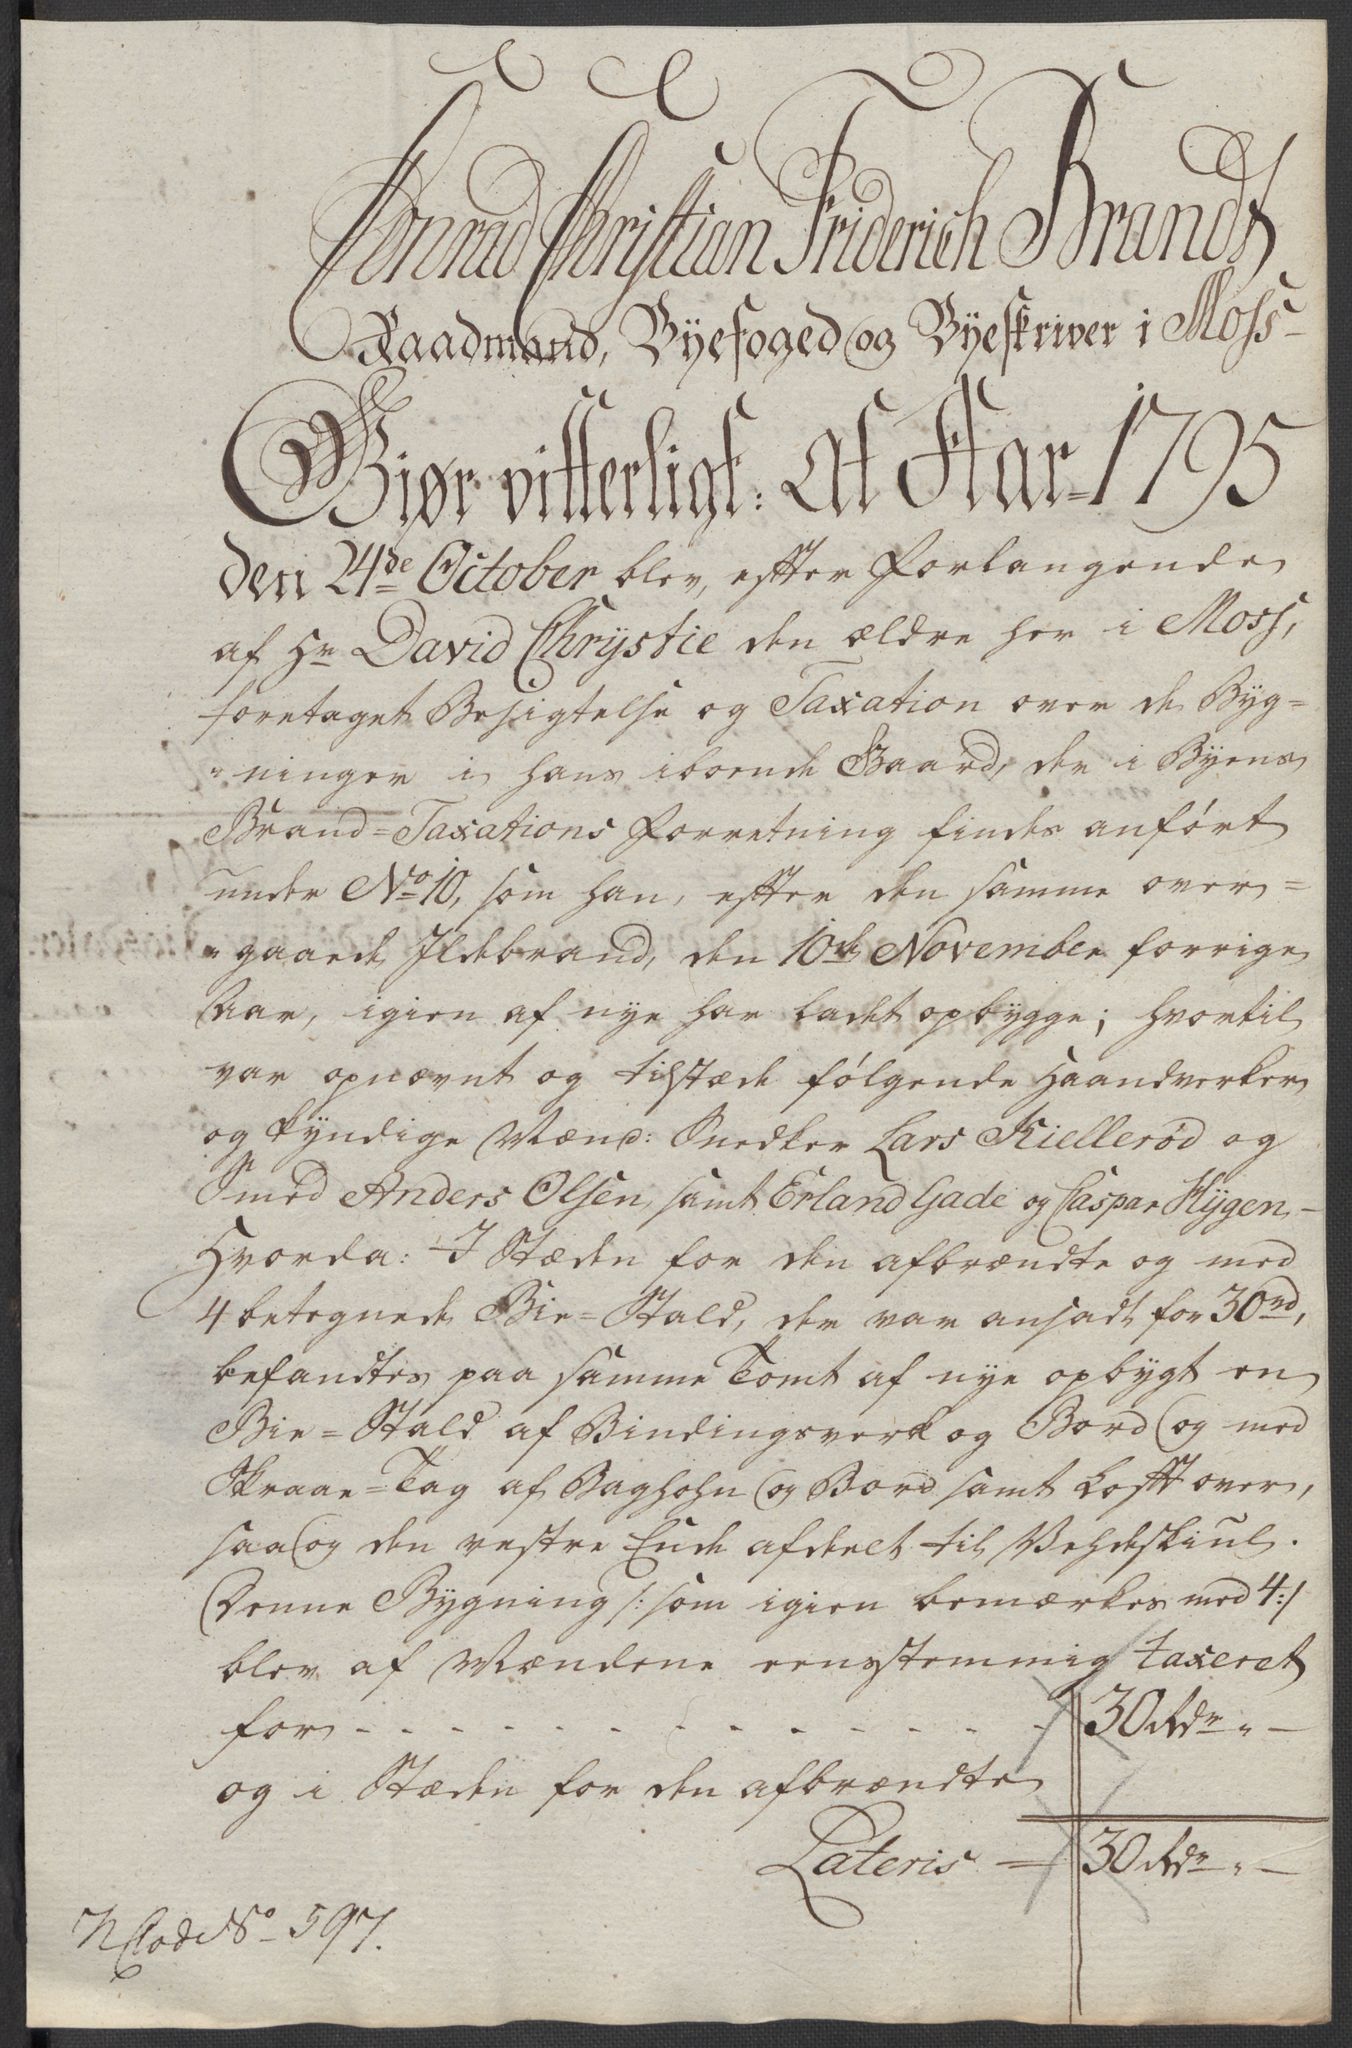 Conrad Christian Friderich Brandt
Raadmand, Byefoged og Byeskriver i Moss-
Giør vitterligt: At Aar=1795
den 24de October blev, efter Forlangende
af Hr David Chrystie den ældre her i Moss,
foretaget Besigtelse og Taxation over de Byg=
"ninger i hans iboende Gaard, der i Byens
Brand=Taxations Forretning findes anført
under No 10, som han, efter den samme over=
"gaaede Ildebrand, den 10de November forrige
Aar, igien af nye har ladet opbygge; hvortil
var opnævnt og tilstæde følgende Haandverker
og kyndige Mænd: Snedker Lars Kiellerød og
Smed Anders Olsen, samt Erland Gade og Caspar Hygen,-
Hvorda: I Stæden for den afbrændte og med
4 betegnede Bie=Stald, der var ansadt for 30rd,
befandtes paa samme Tomt af nye opbygt en
Bie=Stald af Bindingsverk og Bord og med
Skraae=Tag af Baghohn og Bord samt Lofft over,
saa og den vestre Ende afdeelt til Vehdeskiul.
Denne Bygning /: som igien bemærkes med 4:/
blev af Mændene eenstemmig taxeret
for - - - - - - - - - - - - 30 Rdr " -
og i Stæden for den afbrændte
Lateris = 30 Rdr " -
No 597.